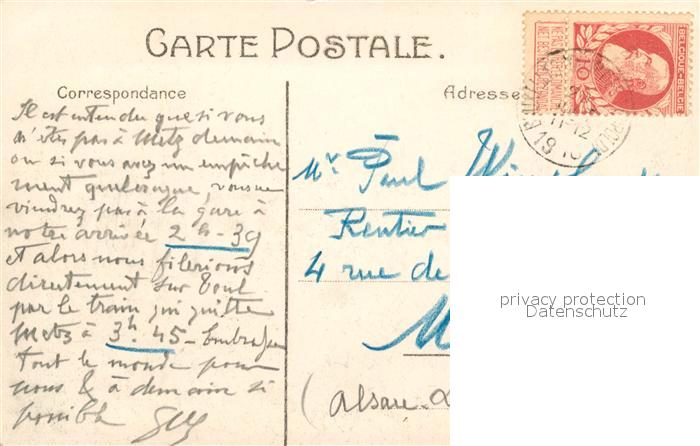 CARTE POSTALE.
Correspondance
Adresse
BELGIQUE-BELGIË
10
Il est entendu que si vous
n'êtes pas à Metz demain
ou si vous avez un empêche
ment quelconque, vous ne
viendrez pas à la gare à
notre arrivée 2h-39
et alors nous filerions
directement sur Toul
par le train qui quitte
Metz à 3h.45 - Embrassez
tout le monde pour
nous & à demain si
possible
Mr Paul
Rentier
4 rue de
M
(Alsace-L
privacy protection
Datenschutz